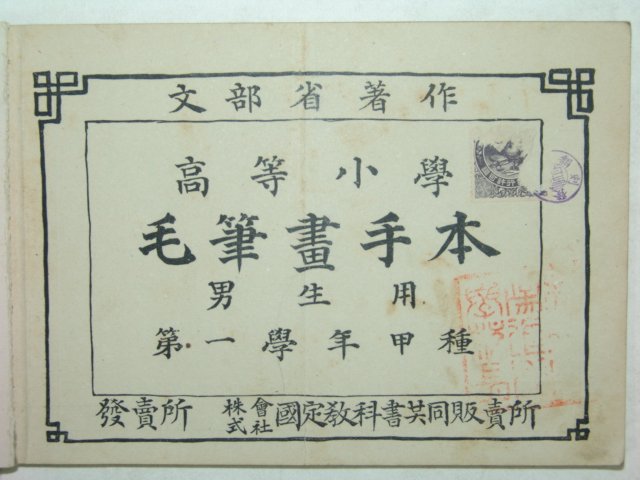 文部省著作
高等小學
毛筆畫手本
男生用
第一學年甲種
發賣所 株式會社國定教科書共同販賣所